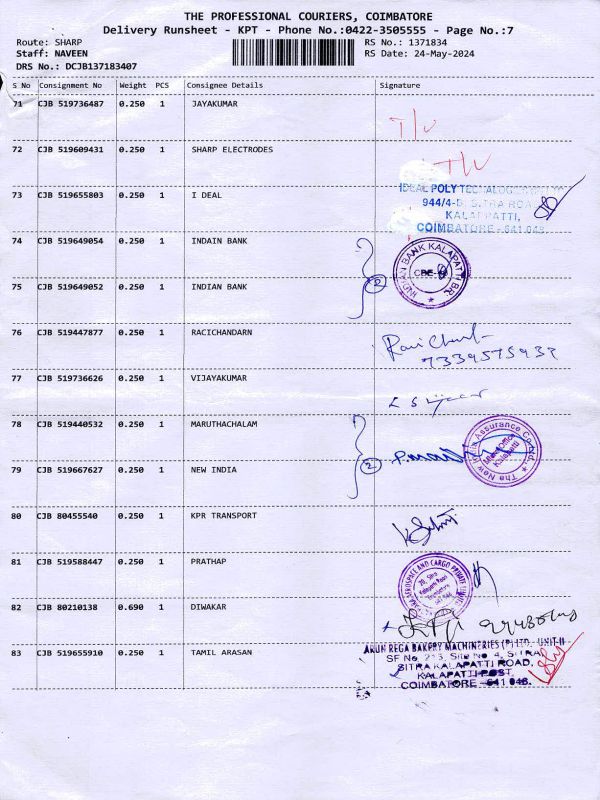 THE PROFESSIONAL COURIERS, COIMBATORE
Delivery Runsheet - KPT - Phone No.:0422-3505555 - Page No.:7
Route: SHARP RS No.: 1371834
Staff: NAVEEN RS Date: 24-May-2024
DRS No.: DCJB137183407
S No Consignment No Weight PCS Consignee Details Signature
71 CJB 519736487 0.250 1 JAYAKUMAR
T/W
72 CJB 519609431 0.250 1 SHARP ELECTRODES
T/W
73 CJB 519655803 0.250 1 I DEAL
IDEAL POLY
944/4-D, SITRA ROAD
KALAPATTI,
COIMBATORE - 641 048.
74 CJB 519649054 0.250 1 INDAIN BANK
INDIAN BANK KALAPATTI BR.
CBE
2
75 CJB 519649052 0.250 1 INDIAN BANK
76 CJB 519447877 0.250 1 RACICHANDARN
7339575932
77 CJB 519736626 0.250 1 VIJAYAKUMAR
78 CJB 519440532 0.250 1 MARUTHACHALAM
The New India Assurance Co. Ltd.
Kalapatti
2
79 CJB 519667627 0.250 1 NEW INDIA
80 CJB 80455540 0.250 1 KPR TRANSPORT
81 CJB 519588447 0.250 1 PRATHAP
AEROSPACE AND CARGO PRIVATE
82 CJB 80210138 0.690 1 DIWAKAR
83 CJB 519655910 0.250 1 TAMIL ARASAN
ARUN REGA BAKERY MACHINERIES (P) LTD. - UNIT-II
SF No. 213, Site No 4, SITRA,
SITRA KALAPATTI ROAD,
KALAPATTI POST,
COIMBATORE - 641 048.